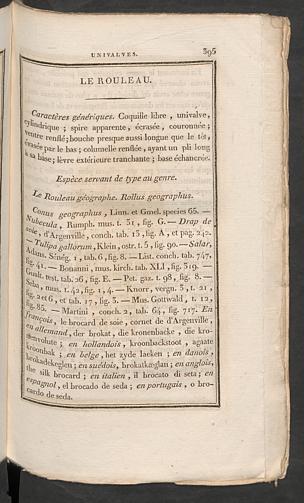 UNIVALVES. 395
LE ROULEAU.
Caractères génériques. Coquille libre, univalve,
cylindrique; spire apparente, écrasée, couronnée;
ventre renflé; bouche presque aussi longue que le têt,
évasée par le bas; columelle renflée, ayant un pli long
à sa base; lèvre extérieure tranchante; base échancrée.
Espèce servant de type au genre.
Le Rouleau géographe. Rollus geographus.
Conus geographus, Linn. et Gmel. species 65. —
Nubecula, Rumph. mus. t. 31, fig. G. — Drap de
soie, d'Argenville, conch. tab. 13, fig. A, et pag. 242.
— Tulipa gallorum, Klein, ostr. t. 5, fig. 90. — Salar,
Adans. Sénég. 1, tab. 6, fig. 8. — List. conch. tab. 747,
fig. 41. — Bonanni, mus. kirch. tab. XLI, fig. 319. —
Gualt. test. tab. 26, fig. E. — Pet. gaz. t. 98, fig. 8. —
Seba, mus. t. 42, fig. 1, 4. — Knorr, vergn. 3, t. 21,
fig. 2 et 6, et tab. 17, fig. 3. — Mus. Gottwald, t. 12,
fig. 85. — Martini, conch. 2, tab. 64, fig. 717. En
françois, le brocard de soie, cornet de d'Argenville,
en allemand, der brokat, die kronenbacke, die kro-
nenvolute; en hollandois, kroonbackstoot, agaate
kroonbak; en belge, het zyde laeken; en danois,
brokadekeglen; en suédois, brokatkæglan; en anglois,
the silk brocard; en italien, il brocato di seta; en
espagnol, el brocado de seda; en portugais, o bro-
cardo de seda.